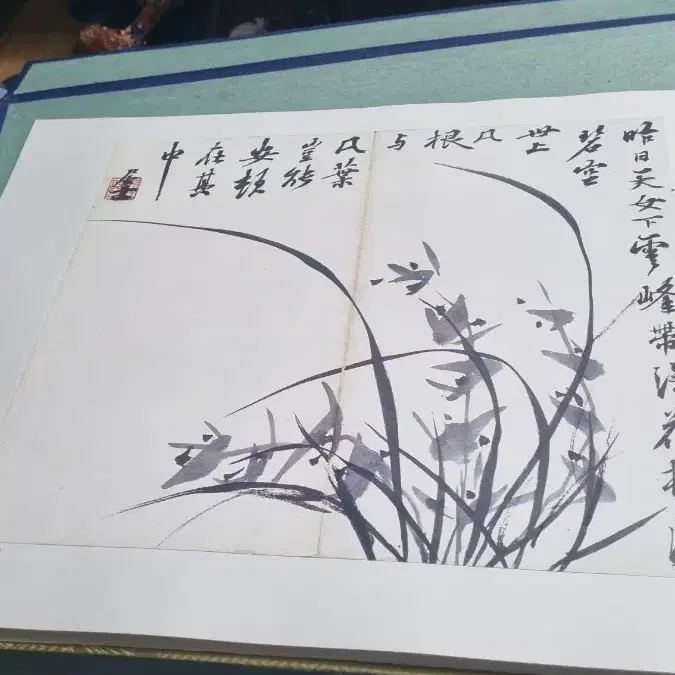 昨日天女下雲峰帶得花
碧空
世上
凡
根
与
凡葉
豈能
安頓
在其
中